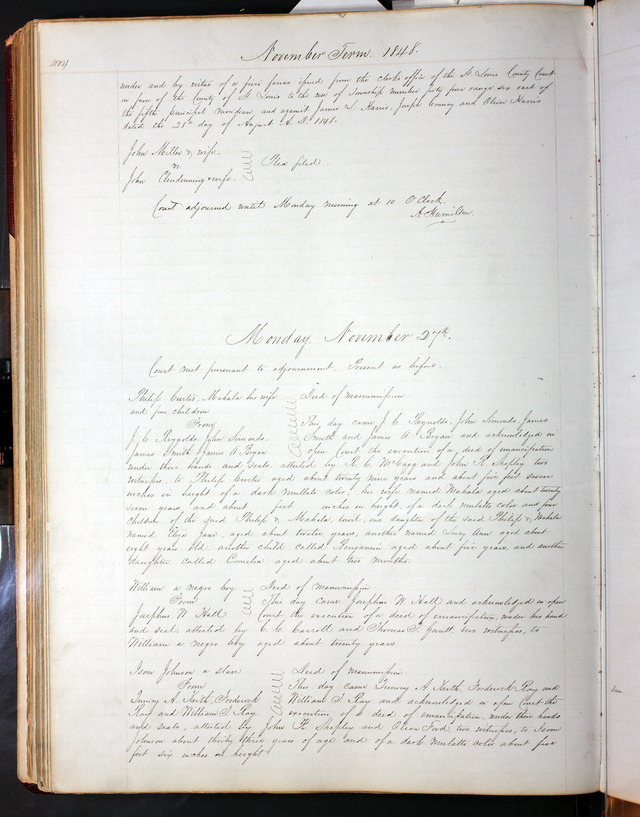 404
November Term 1848.
under and by virtue of a fieri facias issued from the clerks office of the St Louis County Court
in favor of the County of St Louis to the use of Township number forty four range six east of
the fifth principal meridian, and against James L. Harris, Joseph Conway and Oliver Harris
dated the 28th day of August A. D. 1848.
John Miller & wife
vs
Plea filed.
John Clendenning & wife
Court adjourned until Monday morning at 10 O'Clock.
A Hamilton.
Monday, November 27th.
Court met pursuant to adjournment. Present as before.
Philip Curtis, Mahala his wife Deed of manumission
and four children
From This day came J. C. Reynolds, John Simonds, James
J. C. Reynolds, John Simonds, Smith and James A Bryan and acknowledged in
James Smith James A Bryan open Court the execution of a deed of emancipation
under their hands and seals, attested by R. C. McCagg and John R. Shepley two
witnesses, to Philip Curtis aged about twenty nine years and about five feet seven
inches in height of a dark mullato color, his wife named Mahala aged about twenty
seven years and about feet inches in height, of a dark mulatto color and four
children of the said Philip & Mahala, towit, one daughter of the said Philip & Mahala
named Eliza Jane, aged about twelve years, another named Lucy Ann aged about
eight years old, another child called Benjamin aged about five years, and another
daughter called Cornelia aged about two months.
William a negro boy Deed of manumission
From This day came Josephus W Hall and acknowledged in open
Josephus W. Hall Court, the execution of a deed of emancipation under his hand
and seal, attested by C. C. Carroll and Thomas T. Gantt, two witnesses, to
William a negro boy aged about twenty years
Isom Johnson a slave Deed of manumission
From This day came A. Keith, Frederick Ray and
A. Keith, Frederick William T. Ray and acknowledged in open Court the
Ray and William T. Ray execution of a deed of emancipation, under their hands
and seals, attested by John R. Shepley and Ford, two witnesses, to Isom
Johnson about thirty three years of age and of a dark mulatto color about five
feet six inches in height